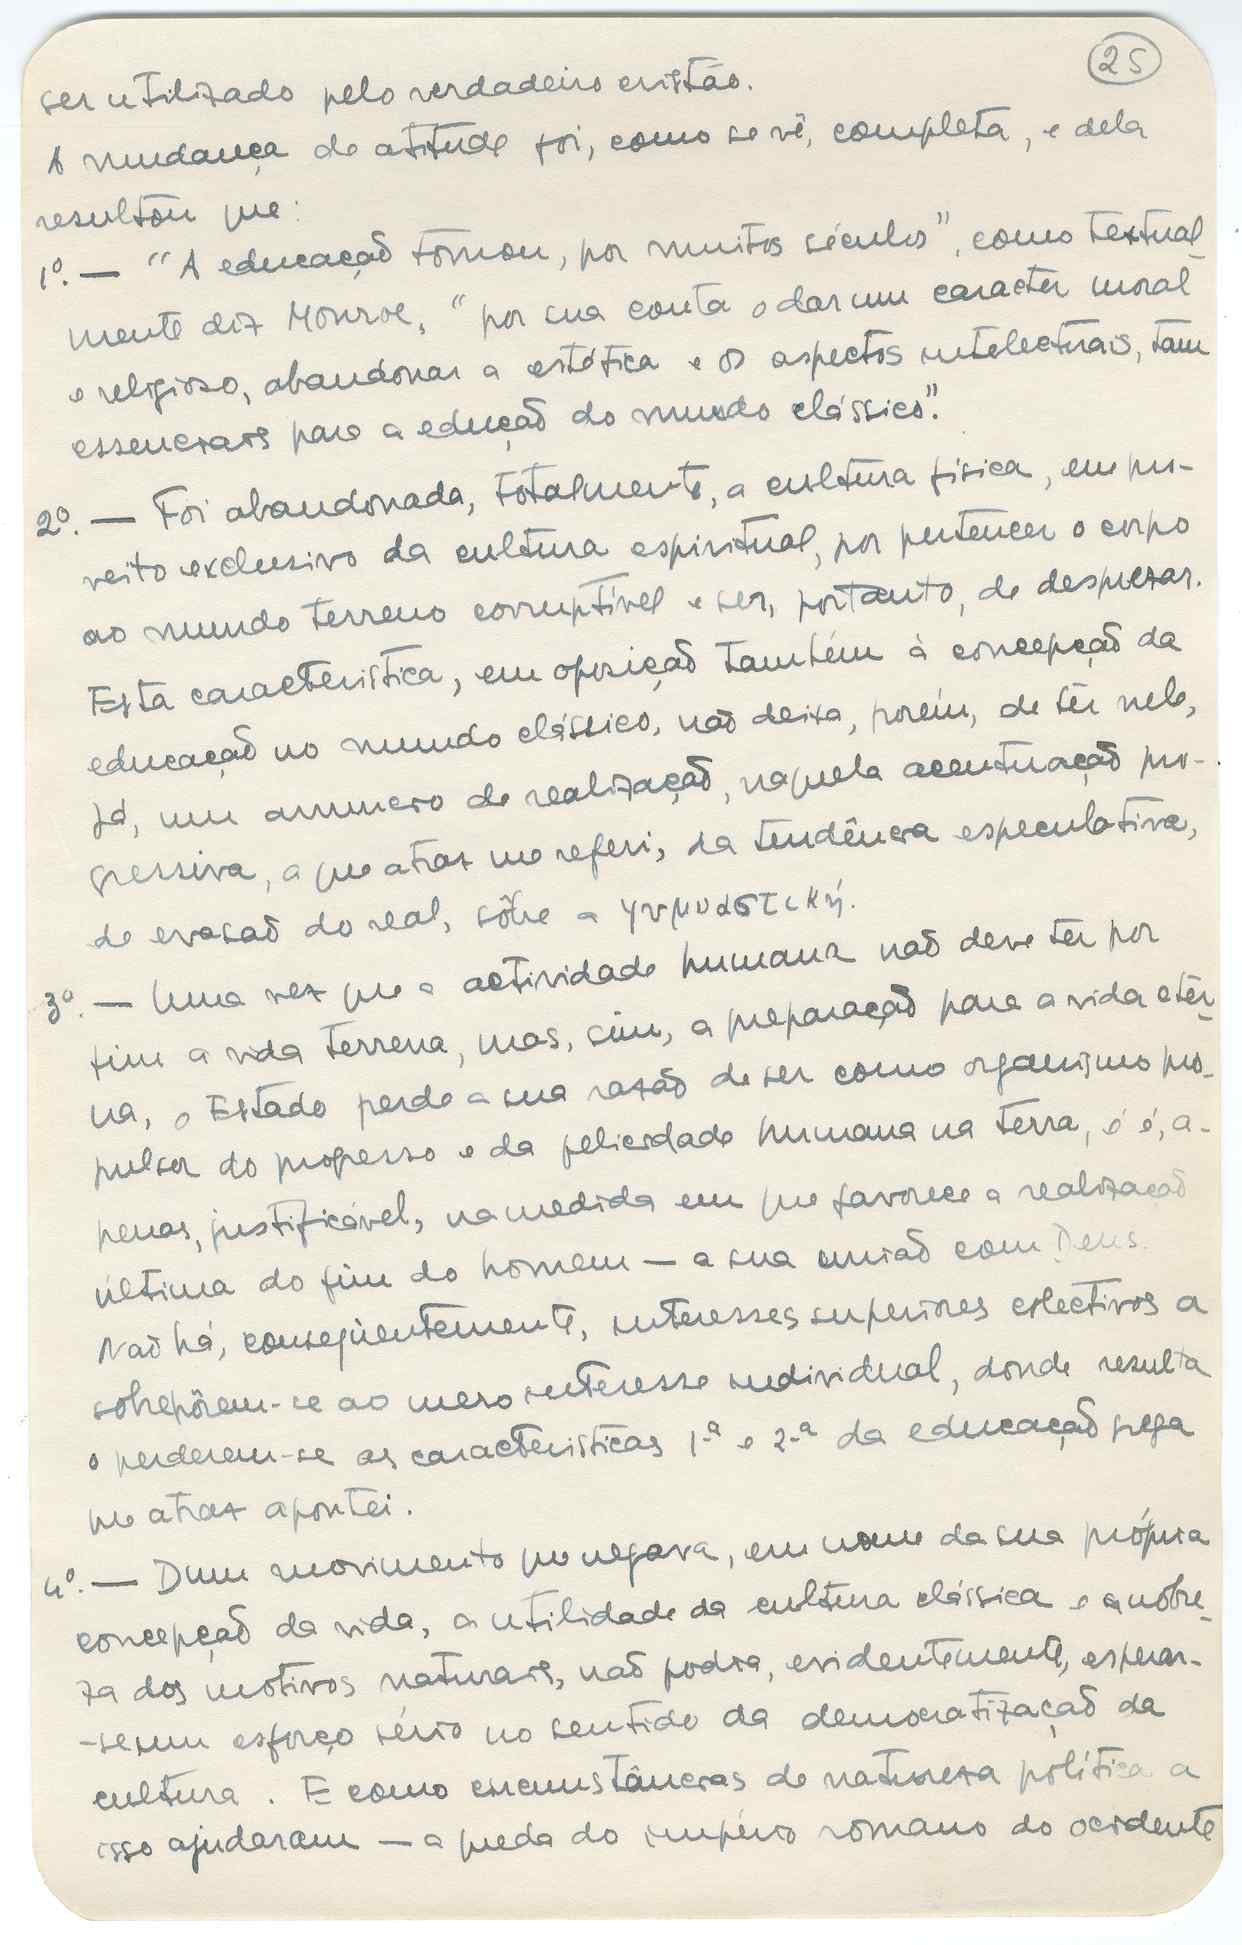 25
ser utilizado pelo verdadeiro cristão.
A mudança de atitude foi, como se vê, completa, e dela
resultou que:
1º. — "A educação tomou, por muitos séculos", como textual-
mente diz Monroe, "por sua conta o dar um caracter moral
e religioso, abandonar a estética e os aspectos intelectuais, tam
essenciais para a edução do mundo clássico".
2º. — Foi abandonada, totalmente, a cultura física, em pro-
veito exclusivo da cultura espiritual, por pertencer o corpo
ao mundo terreno corruptível e ser, portanto, de desprezar.
Esta caracteristica, em oposição também à concepção da
educação no mundo clássico, não deixa, porém, de têr nele,
já, um anuncio de realização, naquela acentuação pro-
gressiva, a que atraz me referi, da tendência especulativa,
de evasão do real, sôbre a γνμναστικη´.
3º. — Uma vez que a actividade humana não deve ter por
fim a vida terrena, mas, sim, a preparação para a vida etér-
na, o Estado perde a sua razão de ser como organismo pro-
pulsor do progresso e da felicidade humana na terra, e é, a-
penas, justificável, na medida em que favorece a realização
última do fim do homem — a sua união com Deus.
Não há, conseqüentemente, interesses superiores colectivos a
sobrepôrem-se ao mero interesse individual, donde resulta
o perderem-se as caracteristicas 1-ª e 2-ª da educação grega
que atraz apontei.
4º. — Dum movimento que negava, em nome da sua própria
concepção da vida, a utilidade da cultura clássica e a nobre-
za dos motivos naturais, não podia, evidentemente, esperar-
-se um esforço sério no sentido da democratização da
cultura. E como circunstâncias de natureza política a
isso ajudaram — a queda do império romano do ocidente